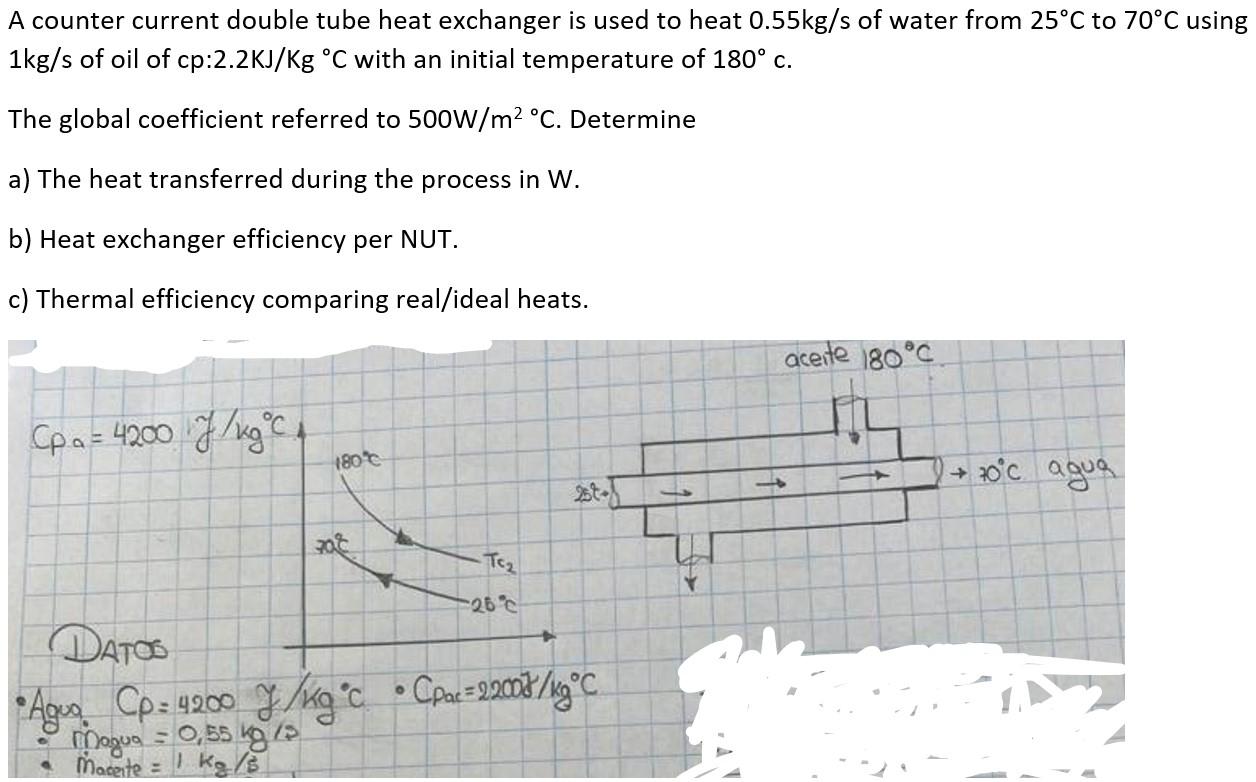 A counter current double tube heat exchanger is used to heat 0.55kg/s of water from 25°C to 70°C using
1kg/s of oil of cp:2.2KJ/Kg °C with an initial temperature of 180° c.
The global coefficient referred to 500W/m² °C. Determine
a) The heat transferred during the process in W.
b) Heat exchanger efficiency per NUT.
c) Thermal efficiency comparing real/ideal heats.
aceite 180°C
Cpa = 4200 J/kg°C
180°C
25°C
→ 70°C agua
70°C
Tc2
25°C
DATOS
• Agua Cp = 4200 J/kg°C • Cpac = 2200J/kg°C
• magua = 0,55 kg/s
• maceite = 1 kg/s